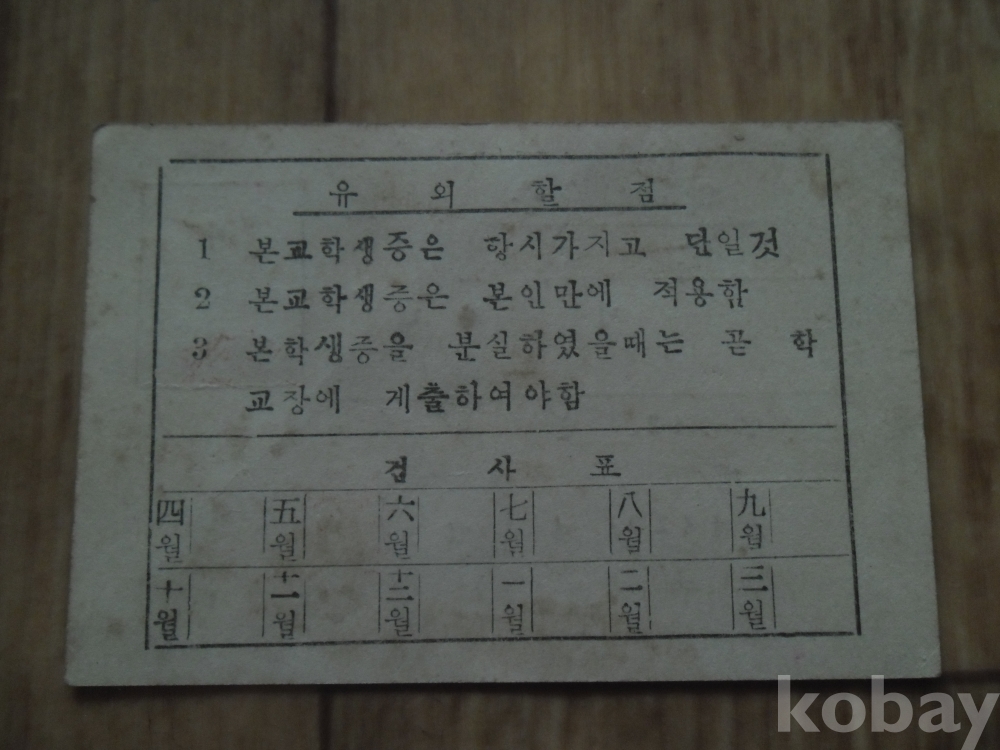 유 외 할 점
1 본교학생증은 항시가지고 단일것
2 본교학생증은 본인만에 적용함
3 본학생증을 분실하였을때는 곧 학
교장에 게출하여야함
검 사 표
四월 五월 六월 七월 八월 九월
十월 十一월 十二월 一월 二월 三월
kobay